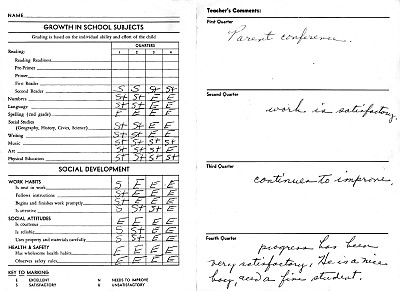 NAME
GROWTH IN SCHOOL SUBJECTS
Grading is based on the individual ability and effort of the child
QUARTERS
Reading: 1 2 3 4
Reading Readiness
Pre-Primer
Primer
First Reader
Second Reader S S St St
Numbers St St E E
Language St St E E
Spelling (2nd grade) E E E E
Social Studies
(Geography, History, Civics, Science) St St E E
Writing St St E E
Music St St St St
Art St St E E
Physical Education St St St St
SOCIAL DEVELOPMENT
WORK HABITS
Is neat in work S E E E
Follows instructions St E E E
Begins and finishes work promptly St E E E
Is attentive S St St E
SOCIAL ATTITUDES
Is courteous E E E E
Is reliable S St E E
Uses property and materials carefully S St E E
HEALTH & SAFETY
Has wholesome health habits E E E E
Observes safety rules E E E E
KEY TO MARKING
E EXCELLENT N NEEDS TO IMPROVE
S SATISFACTORY U UNSATISFACTORY
Teacher's Comments:
First Quarter
Parent conference.
Second Quarter
work is satisfactory
Third Quarter
continues to improve.
Fourth Quarter
progress has been
very satisfactory. He is a nice
boy, and a fine student.